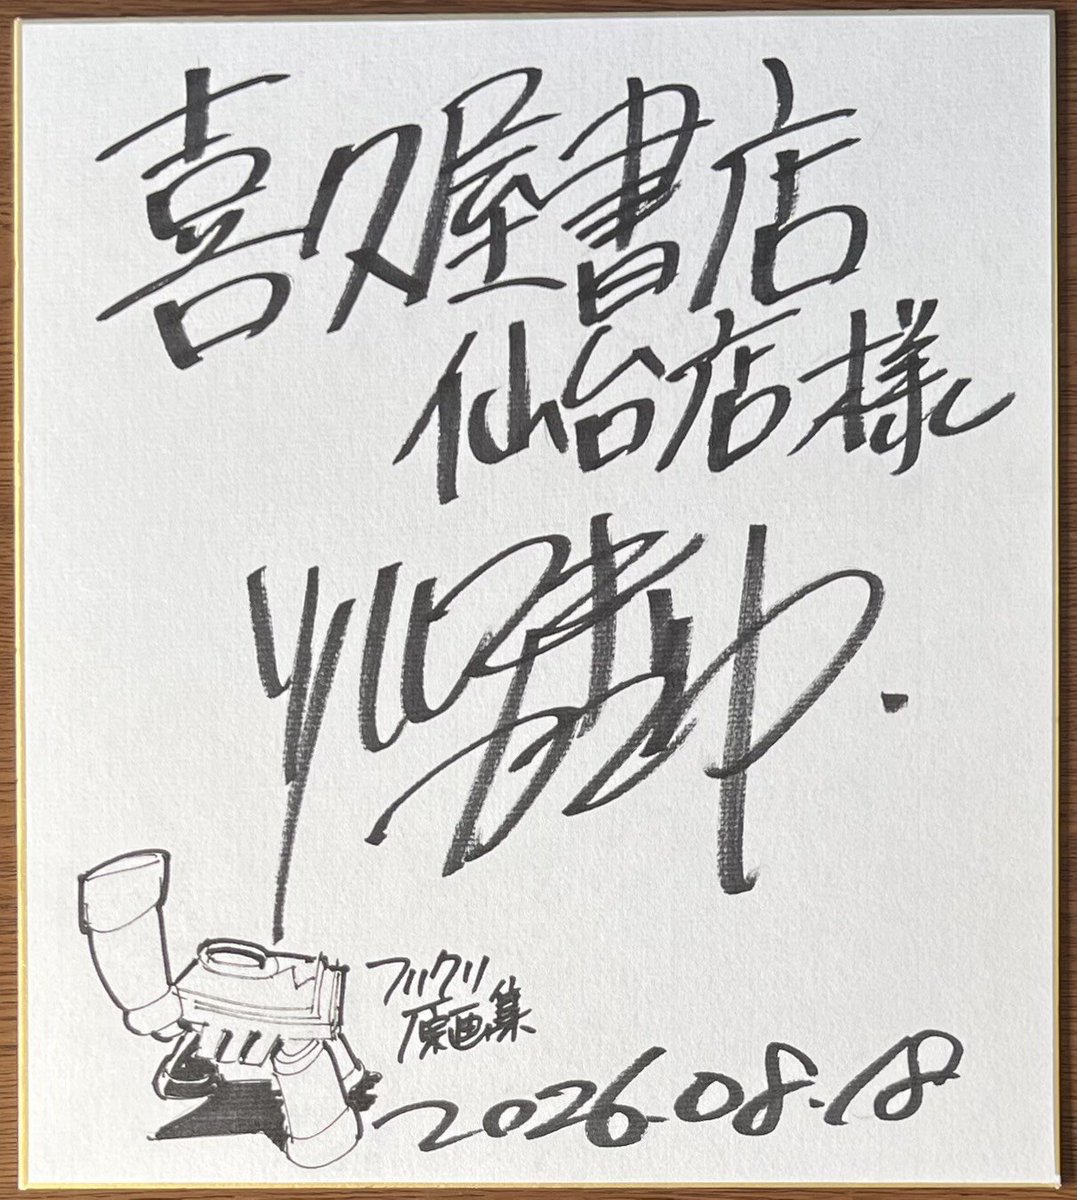 喜久屋書店
仙台店様
フリクリ
原画集
2026.08.18